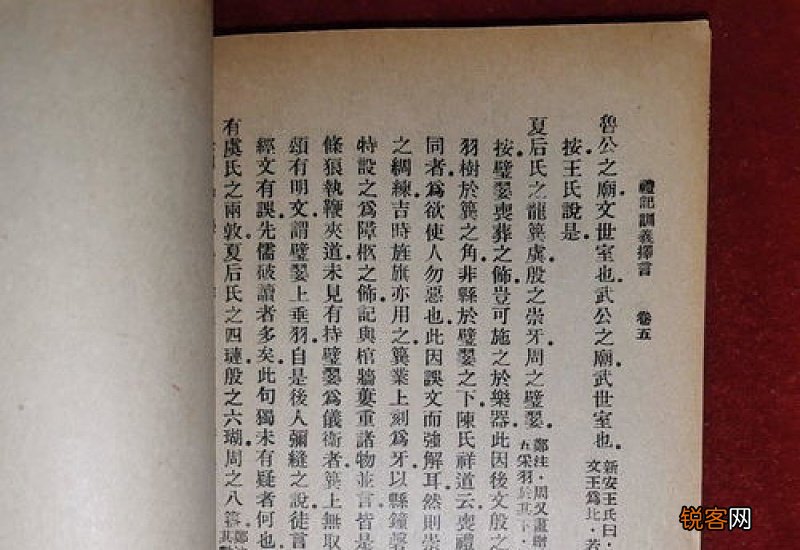 禮記訓義擇言 卷五
魯公之廟文世室也武公之廟武世室也 新安王氏曰
文王爲比若
按王氏說是
夏后氏之龍簨虡殷之崇牙周之璧翣 鄭注周又畫繒
五采羽於其下
按璧翣喪葬之飾豈可施之於樂器此因後文殷之
羽樹於簨之角非縣於璧翣之下陳氏祥道云喪禮
同者爲欲使人勿惡也此因誤文而強解耳然則崇
之綢練吉時旌旗亦用之簨業上刻爲牙以縣鐘磬
特設之爲障柩之飾記與棺牆蔞重諸物並言皆是
條狼執鞭夾道未見有持璧翣爲儀衛者簨上無取
頌有明文謂璧翣上垂羽自是後人彌縫之說徒言
經文有誤先儒破讀者多矣此句獨未有疑者何也
有虞氏之兩敦夏后氏之四璉殷之六瑚周之八簋
锐客网